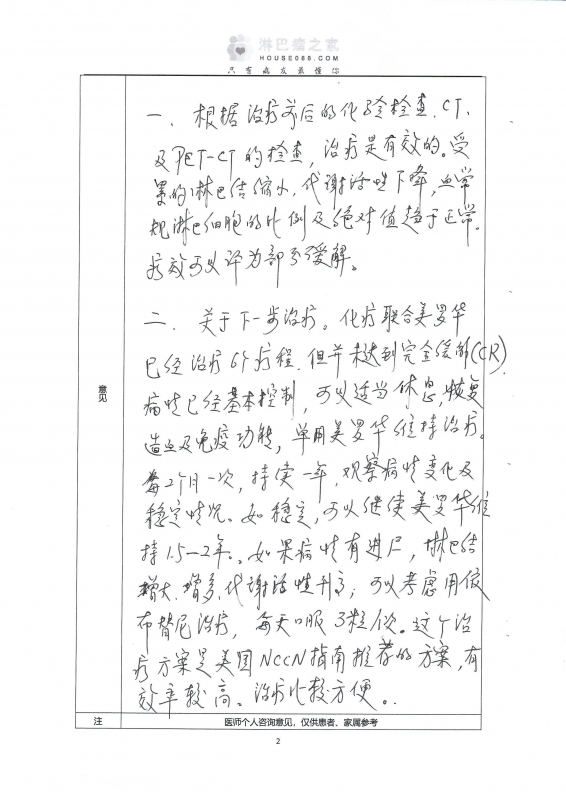 淋巴瘤之家
HOUSE086.COM
只有病友最懂你
一、根据治疗前后的化验检查、CT、
及PET-CT的检查，治疗是有效的。受
累的淋巴结缩小，代谢活性下降，血常
规淋巴细胞的比例及绝对值趋于正常。
疗效可以评为部分缓解。
二、关于下一步治疗。化疗联合美罗华
已经治疗6个疗程，但并未达到完全缓解(CR)
病情已经基本控制，可以适当休息，恢复
造血及免疫功能，单用美罗华维持治疗。
每2个月一次，持续一年，观察病情变化及
稳定情况。如稳定，可以继续美罗华维
持1.5—2年。如果病情有进展，淋巴结
增大、增多，代谢活性升高，可以考虑用依
布替尼治疗，每天口服3粒/次。这个治
疗方案是美国NCCN指南推荐的方案，有
效率较高。治疗比较方便。
意见
注
医师个人咨询意见，仅供患者、家属参考
2